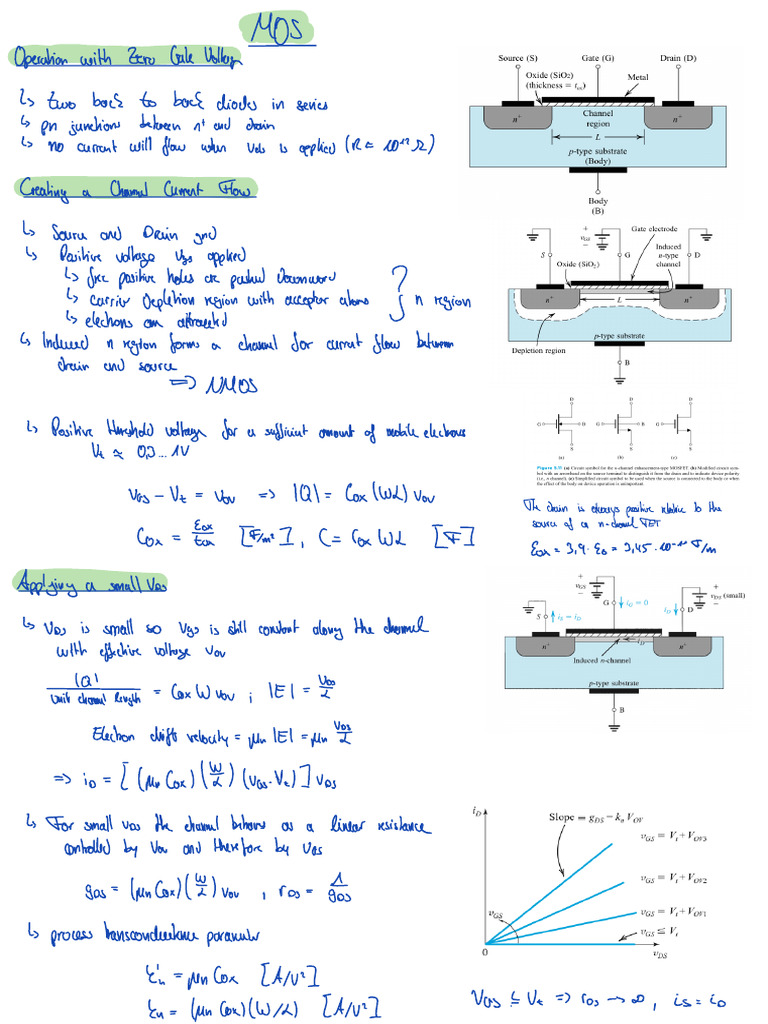 MOS
Operation with Zero Gate Voltage
↳ two back to back diodes in series
↳ pn junctions between n⁺ and drain
↳ no current will flow when v_DS is applied (R ≈ 10¹² Ω)
Source (S) Gate (G) Drain (D)
Oxide (SiO₂)
(thickness = t_ox)
Metal
n⁺ Channel region n⁺
L
p-type substrate
(Body)
Body
(B)
Creating a Channel Current Flow
↳ Source and Drain gnd
↳ Positive voltage v_GS applied
↳ free positive holes are pushed downward
↳ carrier depletion region with acceptor atoms
↳ electrons are attracted
} n region
↳ Induced n region forms a channel for current flow between
drain and source
=> NMOS
+ v_GS −
Gate electrode
Induced
n-type
channel
S G D
Oxide (SiO₂)
n⁺ L n⁺
p-type substrate
Depletion region
B
↳ Positive threshold voltage for a sufficient amount of mobile electrons
V_t ≈ 0,3 ... 1V
v_GS − V_t = v_OV => |Q| = C_ox (WL) v_OV
C_ox = ε_ox / t_ox [F/m²] , C = C_ox WL [F]
D D D
G B G B G
S S S
(a) (b) (c)
Figure 5.11 (a) Circuit symbol for the n-channel enhancement-type MOSFET. (b) Modified circuit sym-
bol with an arrowhead on the source terminal to distinguish it from the drain and to indicate device polarity
(i.e., n channel). (c) Simplified circuit symbol to be used when the source is connected to the body or when
the effect of the body on device operation is unimportant.
The drain is always positive relative to the
source of a n-channel FET
ε_ox = 3,9 · ε_0 = 3,45 · 10⁻¹¹ F/m
Applying a small v_DS
↳ v_DS is small so v_GS is still constant along the channel
with effective voltage v_OV
|Q| / unit channel length = C_ox W v_OV ; |E| = v_DS / L
Electron drift velocity = μn |E| = μn v_DS / L
=> i_D = [(μn C_ox) (W/L) (v_GS − V_t)] v_DS
+ v_GS −
G i_G = 0
+ v_DS (small) −
S i_S = i_D
i_D D
n⁺ i_D n⁺
Induced n-channel
p-type substrate
B
↳ For small v_DS the channel behaves as a linear resistance
controlled by v_OV and therefore by v_GS
g_DS = (μn C_ox) (W/L) v_OV , r_DS = 1 / g_DS
↳ process transconductance parameter
k'_n = μn C_ox [A/V²]
k_n = (μn C_ox) (W/L) [A/V²]
i_D
Slope = g_DS = k_n V_OV
v_GS = V_t + V_OV3
v_GS = V_t + V_OV2
v_GS = V_t + V_OV1
v_GS
v_GS ≤ V_t
0 v_DS
v_GS ≤ V_t => r_DS → ∞ , i_S = i_D